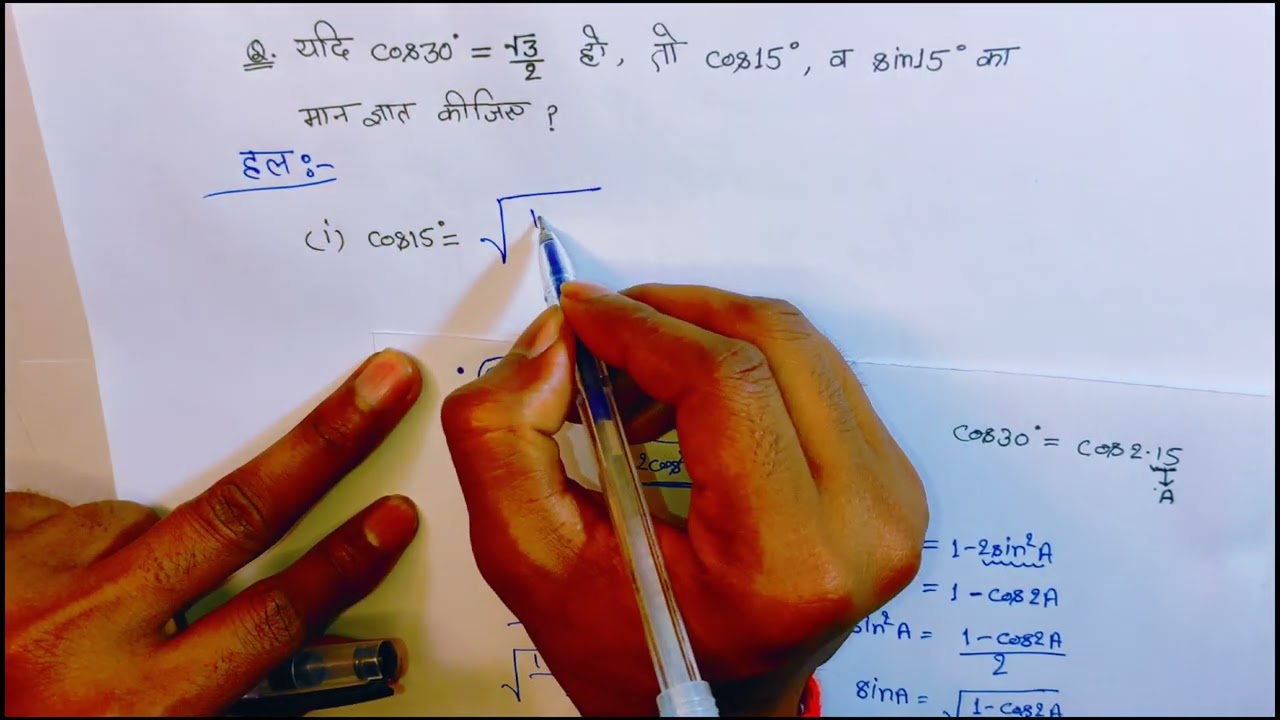 Q. यदि cos30° = √3/2 हो, तो cos15°, व sin15° का
मान ज्ञात कीजिए ?
हल:-
(i) cos15° = √
cos30° = cos2.15
A
2cos²
= 1-2sin²A
= 1-cos2A
sin²A = 1-cos2A/2
sinA = √1-cos2A